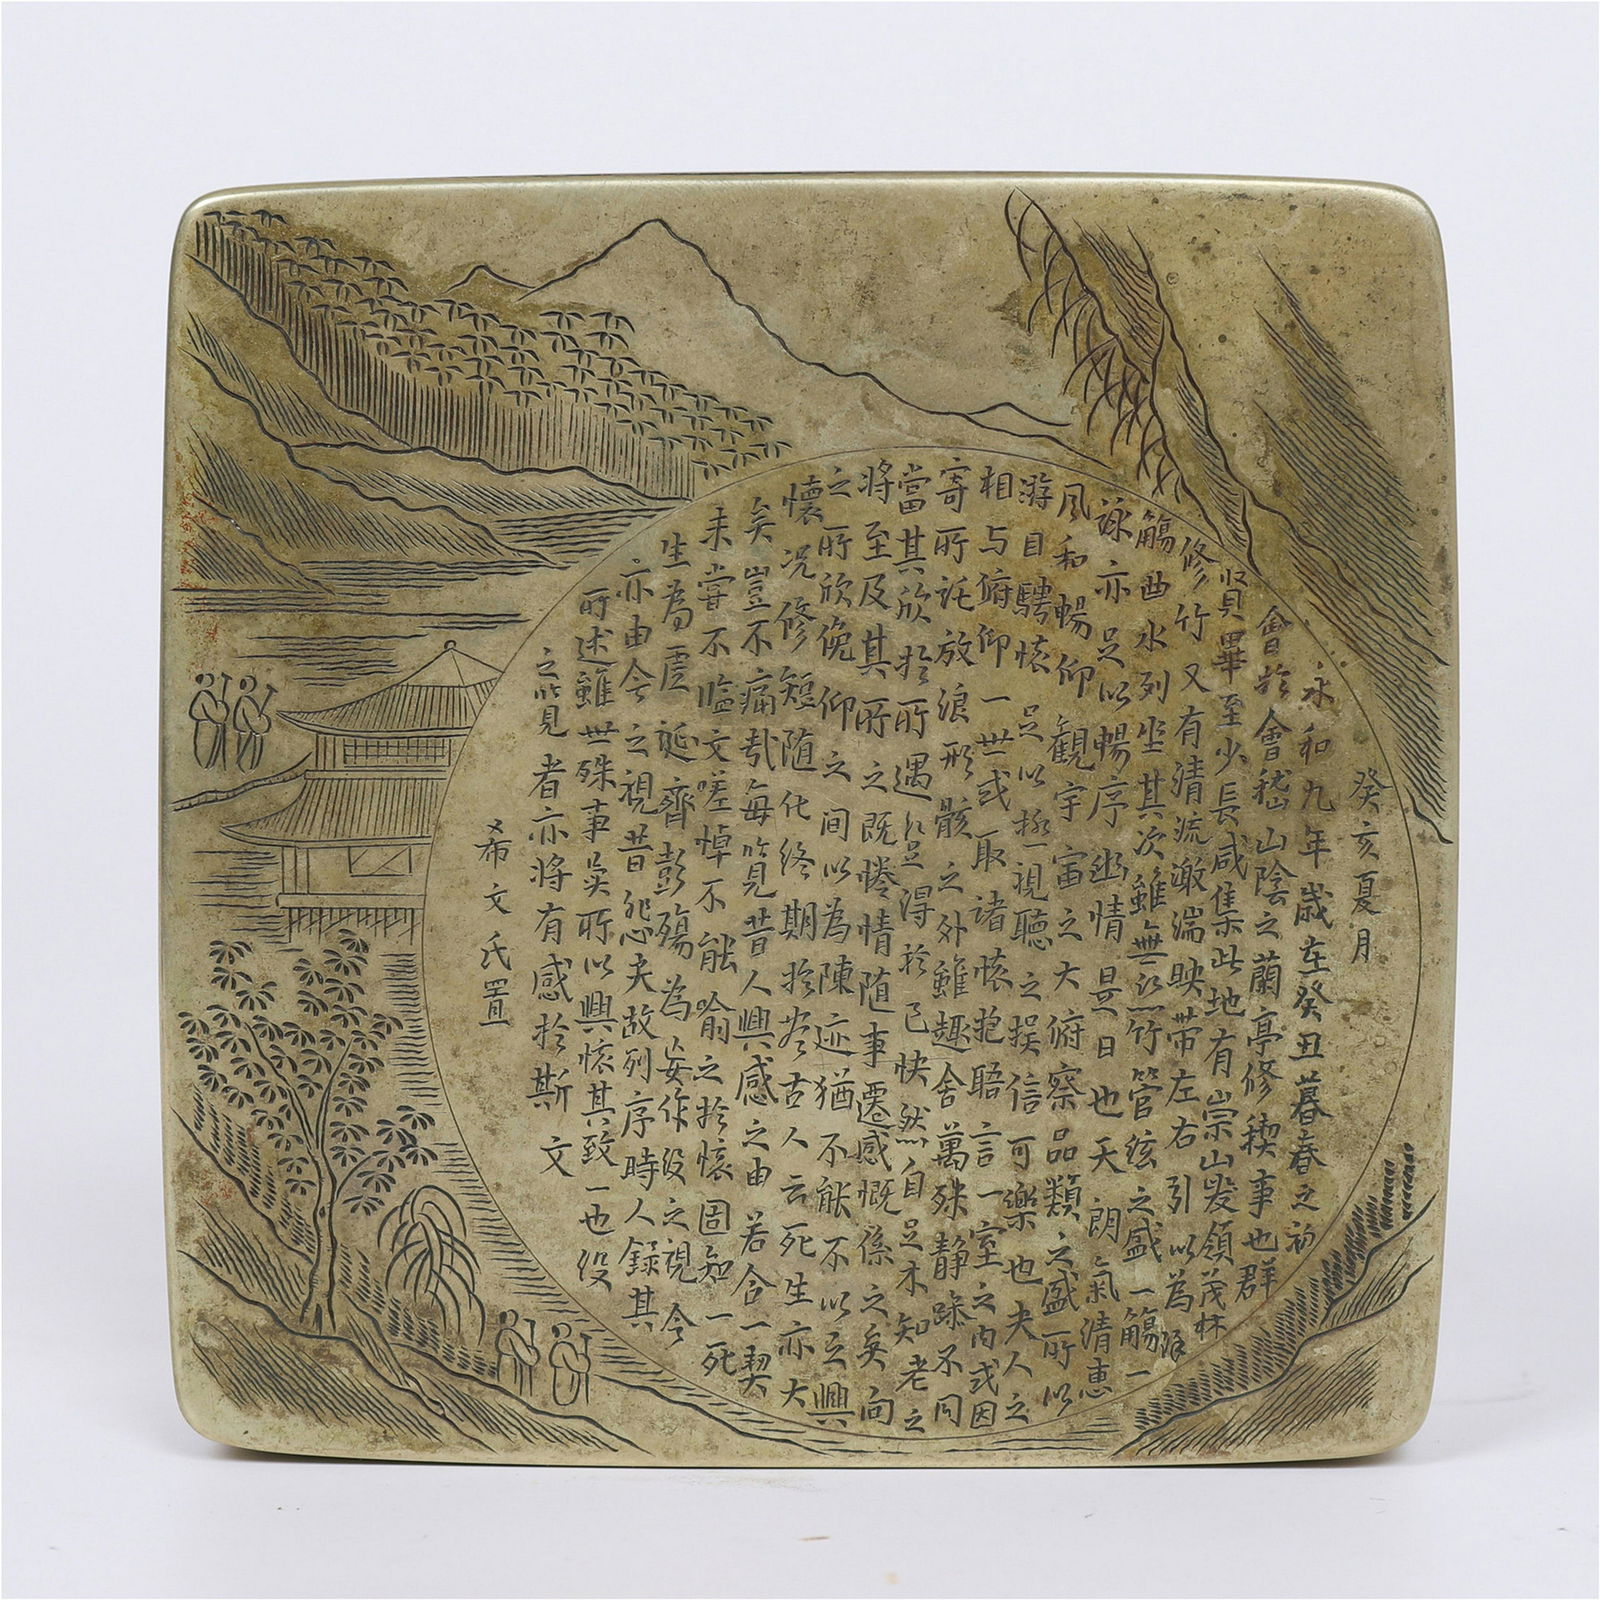 癸亥夏月
永和九年歲在癸丑暮春之初
會於會嵇山陰之蘭亭修禊事也群
賢畢至少長咸集此地有崇山峻領茂林
修竹又有清流激湍映带左右引以為流
觴曲水列坐其次雖無絲竹管弦之盛一觴一
詠亦足以暢序幽情是日也天朗氣清惠
風和暢仰觀宇宙之大俯察品類之盛所以
游目騁懷足以極視聽之娛信可樂也夫人之
相与俯仰一世或取諸懷抱晤言一室之内或因
寄所託放浪形骸之外雖趣舍萬殊靜躁不同
當其欣於所遇得於己快然自足不知老之
將至及其所之既惓情随事遷感慨係之矣向
之所欣俛仰之间以為陳迹猶不能不以之興
懷况修短随化终期於盡古人云死生亦大
矣豈不痛哉每覽昔人興感之由若合一契
未嘗不臨文嗟悼不能喻之於懷固知一死
生為虛誕齊彭殤為妄作後之視今
亦由今之視昔悲夫故列序時人録其
所述雖世殊事異所以興懷其致一也後
之覽者亦將有感於斯文
希文氏置